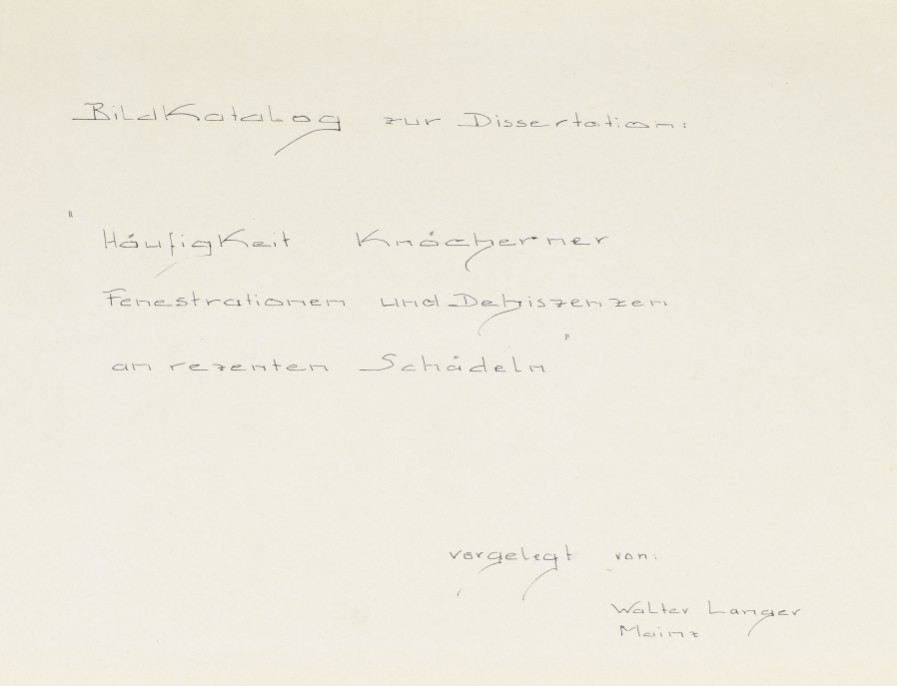 Bildkatalog zur Dissertation:
"Häufigkeit knöcherner
Fenestrationen und Dehiszenzen
an rezenten Schädeln"
vorgelegt von:
Walter Langer
Mainz